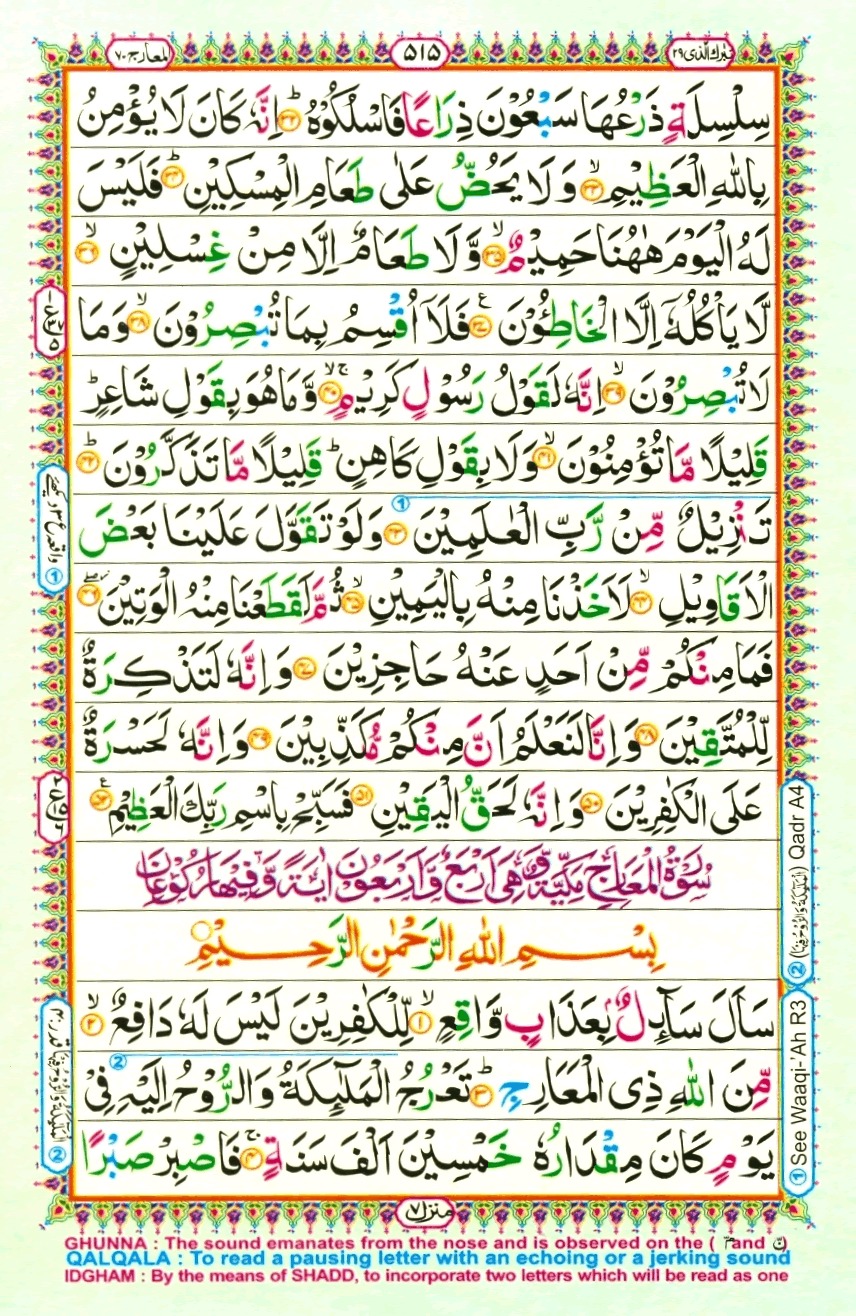 تبٰرك الذی ٢٩
٥١٥
المعارج ٧٠
سِلْسِلَةٍ ذَرْعُهَا سَبْعُوْنَ ذِرَاعًا فَاسْلُكُوْهُ ؕ﴿٣٢﴾ اِنَّهٗ كَانَ لَا يُؤْمِنُ
بِاللّٰهِ الْعَظِيْمِ ۙ﴿٣٣﴾ وَ لَا يَحُضُّ عَلٰى طَعَامِ الْمِسْكِيْنِ ؕ﴿٣٤﴾ فَلَيْسَ
لَهُ الْيَوْمَ هٰهُنَا حَمِيْمٌ ۙ﴿٣٥﴾ وَّ لَا طَعَامٌ اِلَّا مِنْ غِسْلِيْنٍ ۙ﴿٣٦﴾
لَّا يَاْكُلُهٗۤ اِلَّا الْخَاطِـُٔوْنَ ﴿٣٧﴾ فَلَاۤ اُقْسِمُ بِمَا تُبْصِرُوْنَ ۙ﴿٣٨﴾ وَ مَا
لَا تُبْصِرُوْنَ ۙ﴿٣٩﴾ اِنَّهٗ لَقَوْلُ رَسُوْلٍ كَرِيْمٍ ۚۙ﴿٤٠﴾ وَّ مَا هُوَ بِقَوْلِ شَاعِرٍ ؕ
قَلِيْلًا مَّا تُؤْمِنُوْنَ ۙ﴿٤١﴾ وَ لَا بِقَوْلِ كَاهِنٍ ؕ قَلِيْلًا مَّا تَذَكَّرُوْنَ ؕ﴿٤٢﴾
تَنْزِيْلٌ مِّنْ رَّبِّ الْعٰلَمِيْنَ ﴿٤٣﴾ وَ لَوْ تَقَوَّلَ عَلَيْنَا بَعْضَ
الْاَقَاوِيْلِ ۙ﴿٤٤﴾ لَاَخَذْنَا مِنْهُ بِالْيَمِيْنِ ۙ﴿٤٥﴾ ثُمَّ لَقَطَعْنَا مِنْهُ الْوَتِيْنَ ﴿٤٦﴾
فَمَا مِنْكُمْ مِّنْ اَحَدٍ عَنْهُ حَاجِزِيْنَ ﴿٤٧﴾ وَ اِنَّهٗ لَتَذْكِرَةٌ
لِّلْمُتَّقِيْنَ ﴿٤٨﴾ وَ اِنَّا لَنَعْلَمُ اَنَّ مِنْكُمْ مُّكَذِّبِيْنَ ﴿٤٩﴾ وَ اِنَّهٗ لَحَسْرَةٌ
عَلَى الْكٰفِرِيْنَ ﴿٥٠﴾ وَ اِنَّهٗ لَحَقُّ الْيَقِيْنِ ﴿٥١﴾ فَسَبِّحْ بِاسْمِ رَبِّكَ الْعَظِيْمِ ﴿٥٢﴾
سُوْرَةُ الْمَعَارِجِ مَكِّيَّةٌ وَّهِىَ اَرْبَعٌ وَّاَرْبَعُوْنَ اٰيَةً وَّفِيْهَا رُكُوْعَانِ
بِسْمِ اللّٰهِ الرَّحْمٰنِ الرَّحِيْمِ
سَاَلَ سَآىِٕلٌۢ بِعَذَابٍ وَّاقِعٍ ۙ﴿١﴾ لِّلْكٰفِرِيْنَ لَيْسَ لَهٗ دَافِعٌ ۙ﴿٢﴾
مِّنَ اللّٰهِ ذِى الْمَعَارِجِ ؕ﴿٣﴾ تَعْرُجُ الْمَلٰٓىِٕكَةُ وَ الرُّوْحُ اِلَيْهِ فِىْ
يَوْمٍ كَانَ مِقْدَارُهٗ خَمْسِيْنَ اَلْفَ سَنَةٍ ۚ﴿٤﴾ فَاصْبِرْ صَبْرًا
② (الْمَلٰٓىِٕكَةُ وَالرُّوْحُ فِيْهَا) Qadr A4
① See Waaqi-'Ah R3
منزل ٧
GHUNNA : The sound emanates from the nose and is observed on the ( مّ and نّ )
QALQALA : To read a pausing letter with an echoing or a jerking sound
IDGHAM : By the means of SHADD, to incorporate two letters which will be read as one